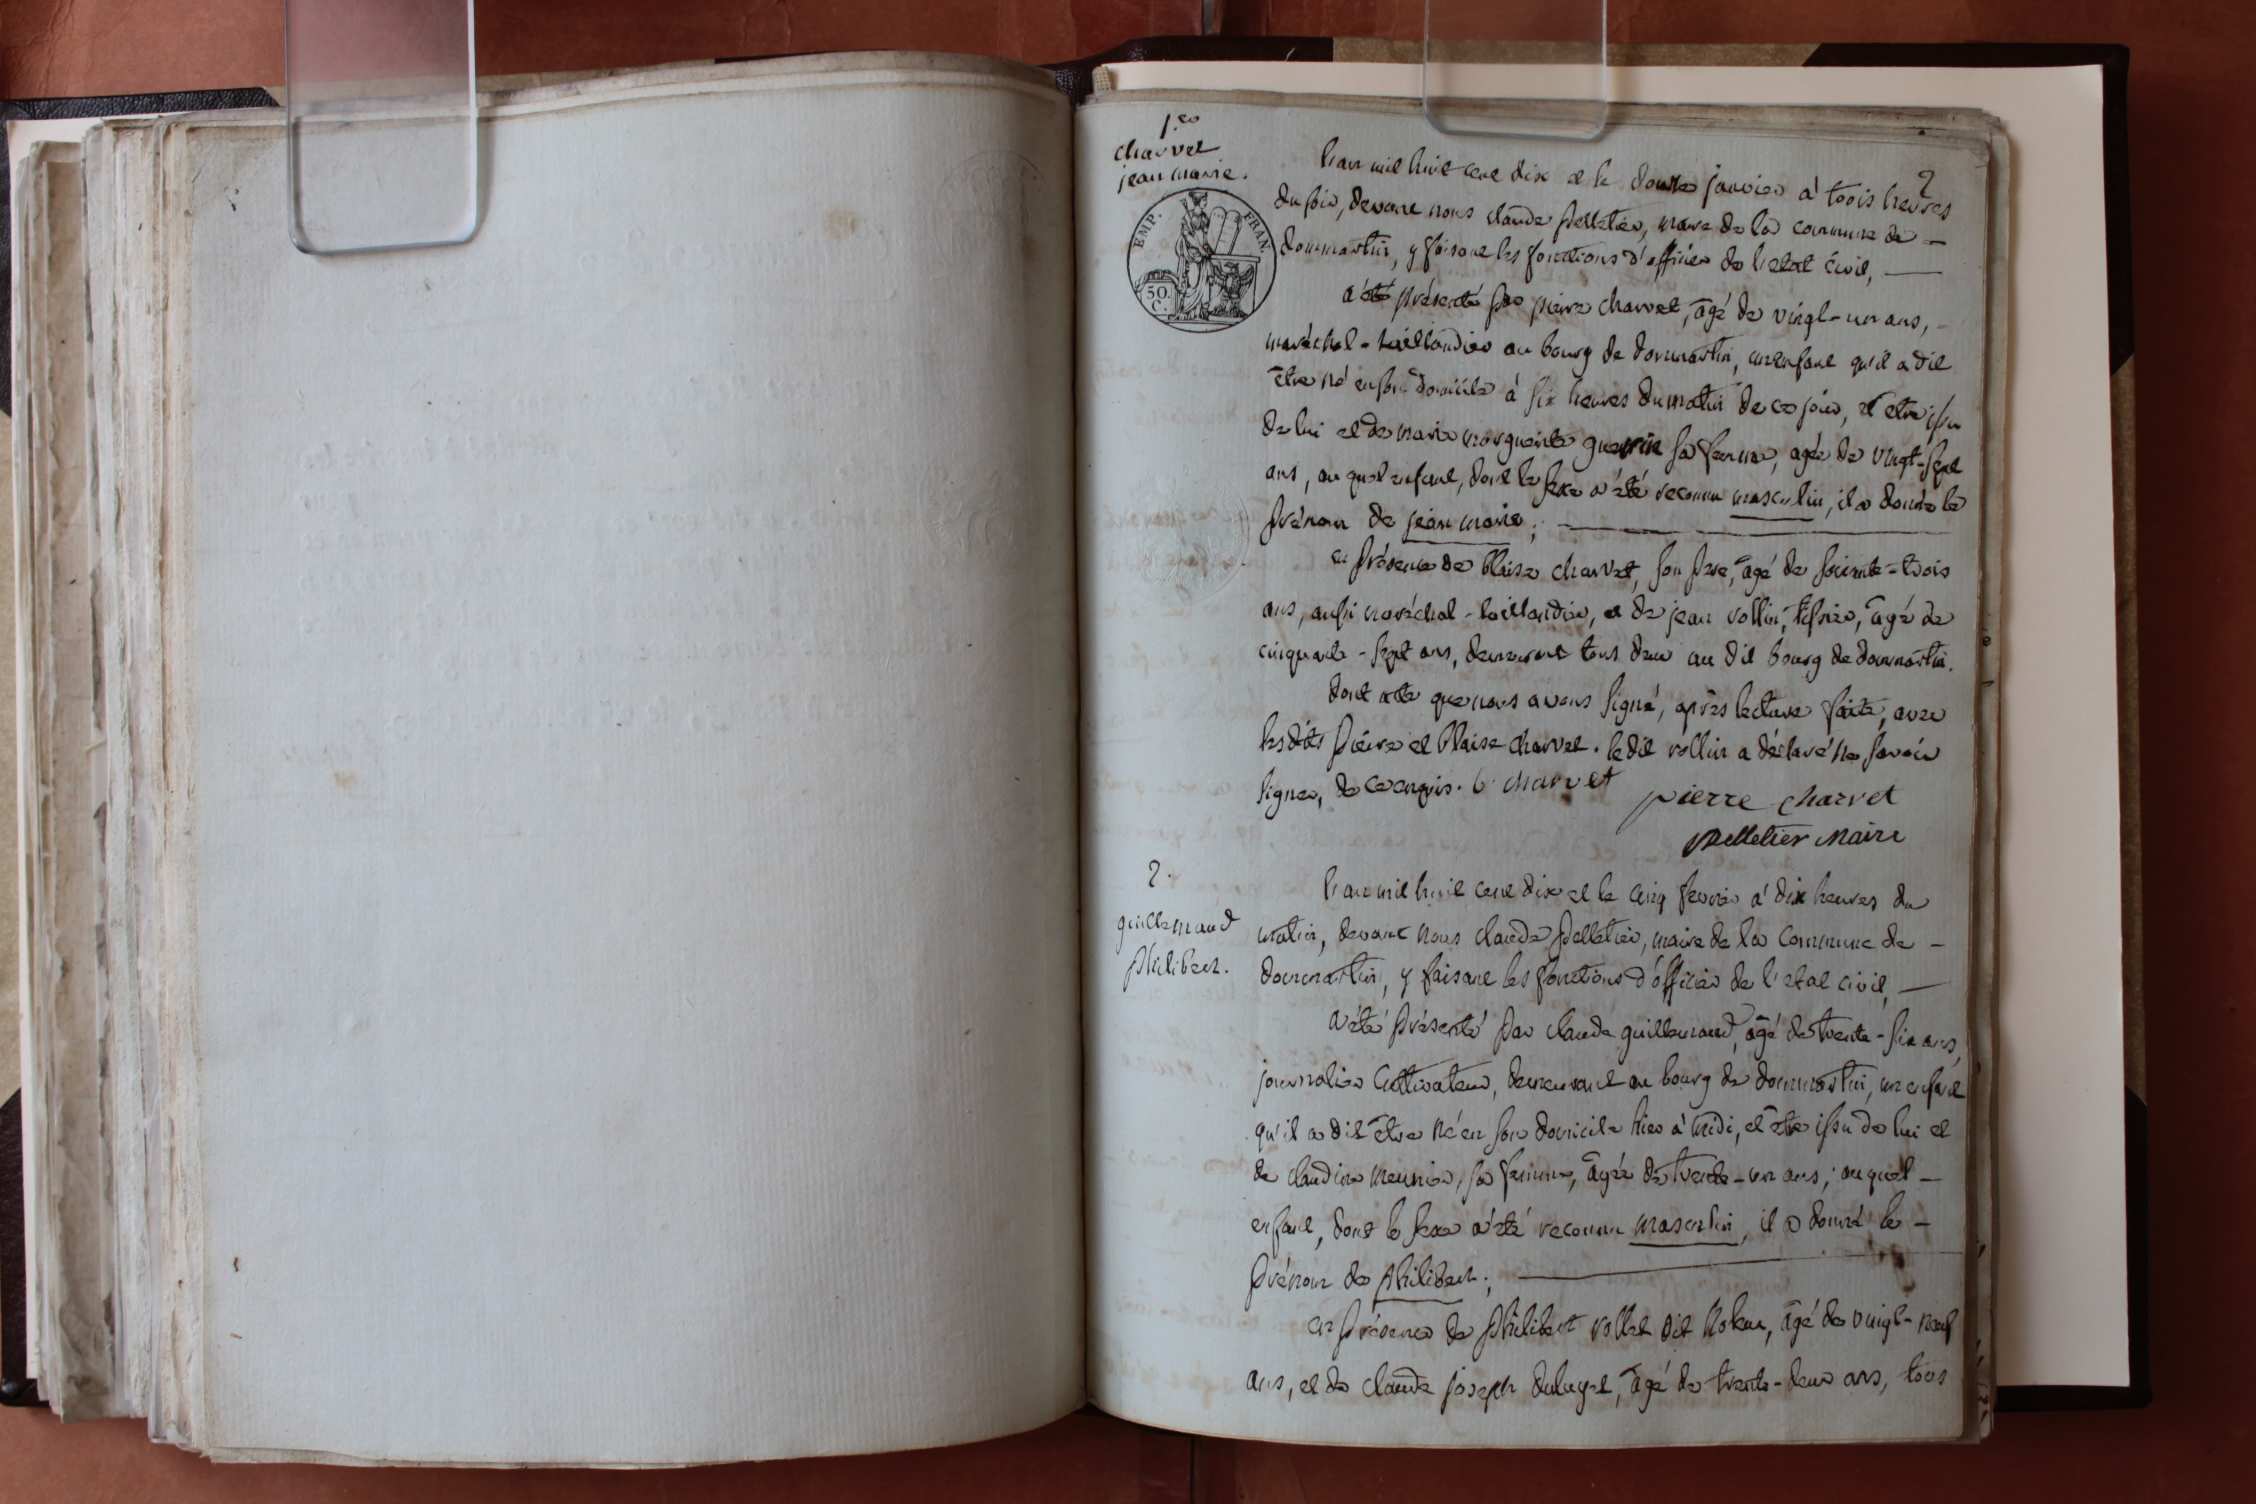 1.er
charvet
jean marie.
2
EMP. FRAN.
50.
C.
l'an mil huit cent dix et le douze janvier à trois heures
du soir, devant nous claude pelletier, maire de la commune de —
dommartin, y faisant les fonctions d'officier de l'etat civil, —
a été présenté par pierre charvet, âgé de vingt-un ans, -
maréchal-taillandier au bourg de dommartin, un enfant qu'il a dit
être né en son domicile à six heures du matin de ce jour, et etre issu
de lui et de marie marguerite guerrin sa femme, agée de vingt-sept
ans, au quel enfant, dont le sexe a été reconnu masculin, il a donné le
prénom de jean marie; —
en présence de blaise charvet, son pere, âgé de soixante-trois
ans, aussi maréchal-taillandier, et de jean rollin, tissier, âgé de
cinquante-sept ans, demeurant tous deux au dit bourg de dommartin.
dont acte que nous avons signé, après lecture faite, avec
lesdits pierre et blaise charvet. le dit rollin a déclaré ne savoir
signer, de ce enquis. b. charvet
pierre charvet
pelletier maire
2.
guillemaud
philibert.
l'an mil huit cent dix et le cinq fevrier à dix heures du
matin, devant nous claude pelletier, maire de la commune de —
dommartin, y faisant les fonctions d'officier de l'etat civil, —
a été présenté par claude guillemaud, âgé de trente-six ans,
journalier cultivateur, demeurant au bourg de dommartin, un enfant
qu'il a dit être né en son domicile hier à midi, et etre issu de lui et
de claudine meunier, sa femme, âgée de trente-un ans; au quel —
enfant, dont le sexe a été reconnu masculin, il a donné le —
prénom de philibert; —
en présence de philibert rollet dit , âgé de vingt-neuf
ans, et de claude joseph , âgé de trente-deux ans, tous